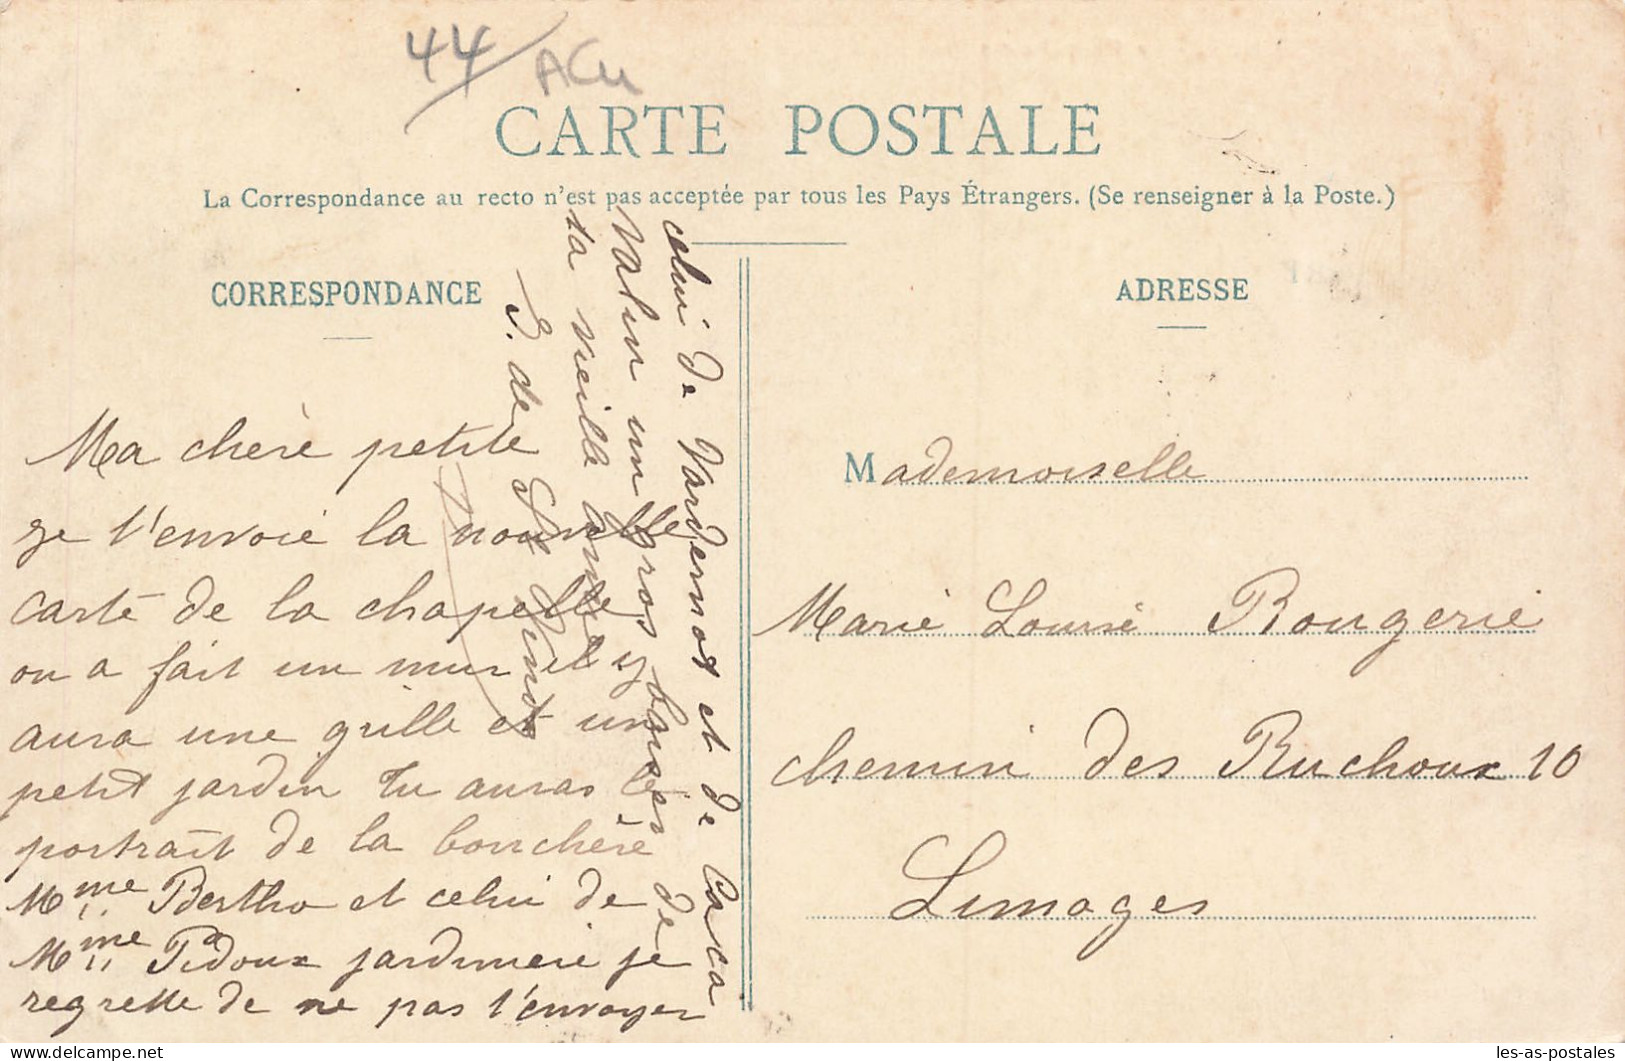 44
CARTE POSTALE
La Correspondance au recto n'est pas acceptée par tous les Pays Étrangers. (Se renseigner à la Poste.)
CORRESPONDANCE
Ma chère petite
je t'envoie la nouvelle
carte de la chapelle
on a fait un mur et y
aura une grille et un
petit jardin Tu auras le
portrait de la bouchère
Mme Bertho et celui de
Mme Pidoux jardinière je
regrette de ne pas t'envoyer
celui de Vardernot et de Coca
Valin un gros baiser de
ta vieille amie
S. de St Vinot
ADRESSE
Mademoiselle
Marie Louise Rougerie
chemin des Ruchoux 10
Limoges
les-as-postales